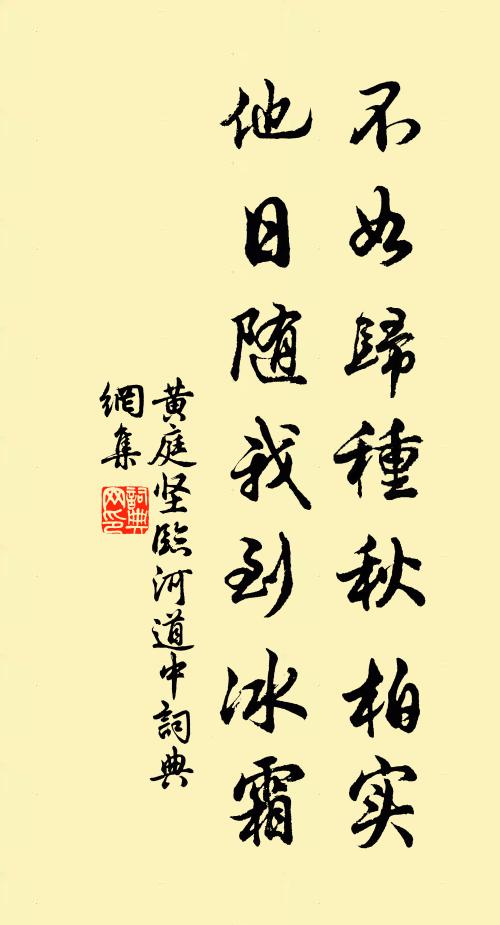 不如歸種秋柏实
他日随我到冰霜
黄庭坚臨河道中詞典
網集
詞典
网印